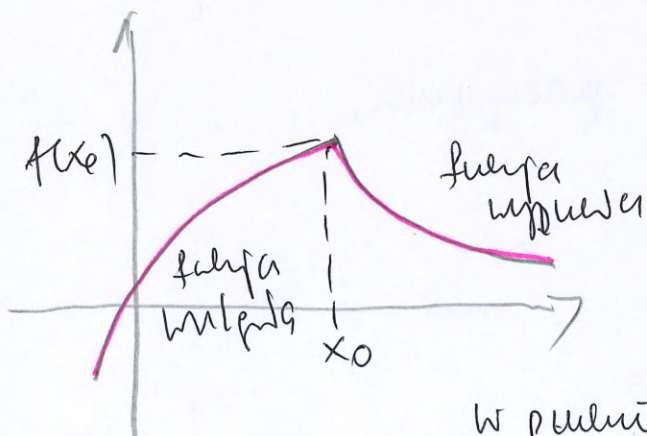 f(x₀)
funkcja
wypukła
funkcja
wklęsła
x₀
W punkci